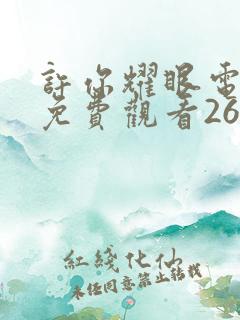 許你耀眼電
免費觀看26
紅綫化仙
未经同意禁止转载